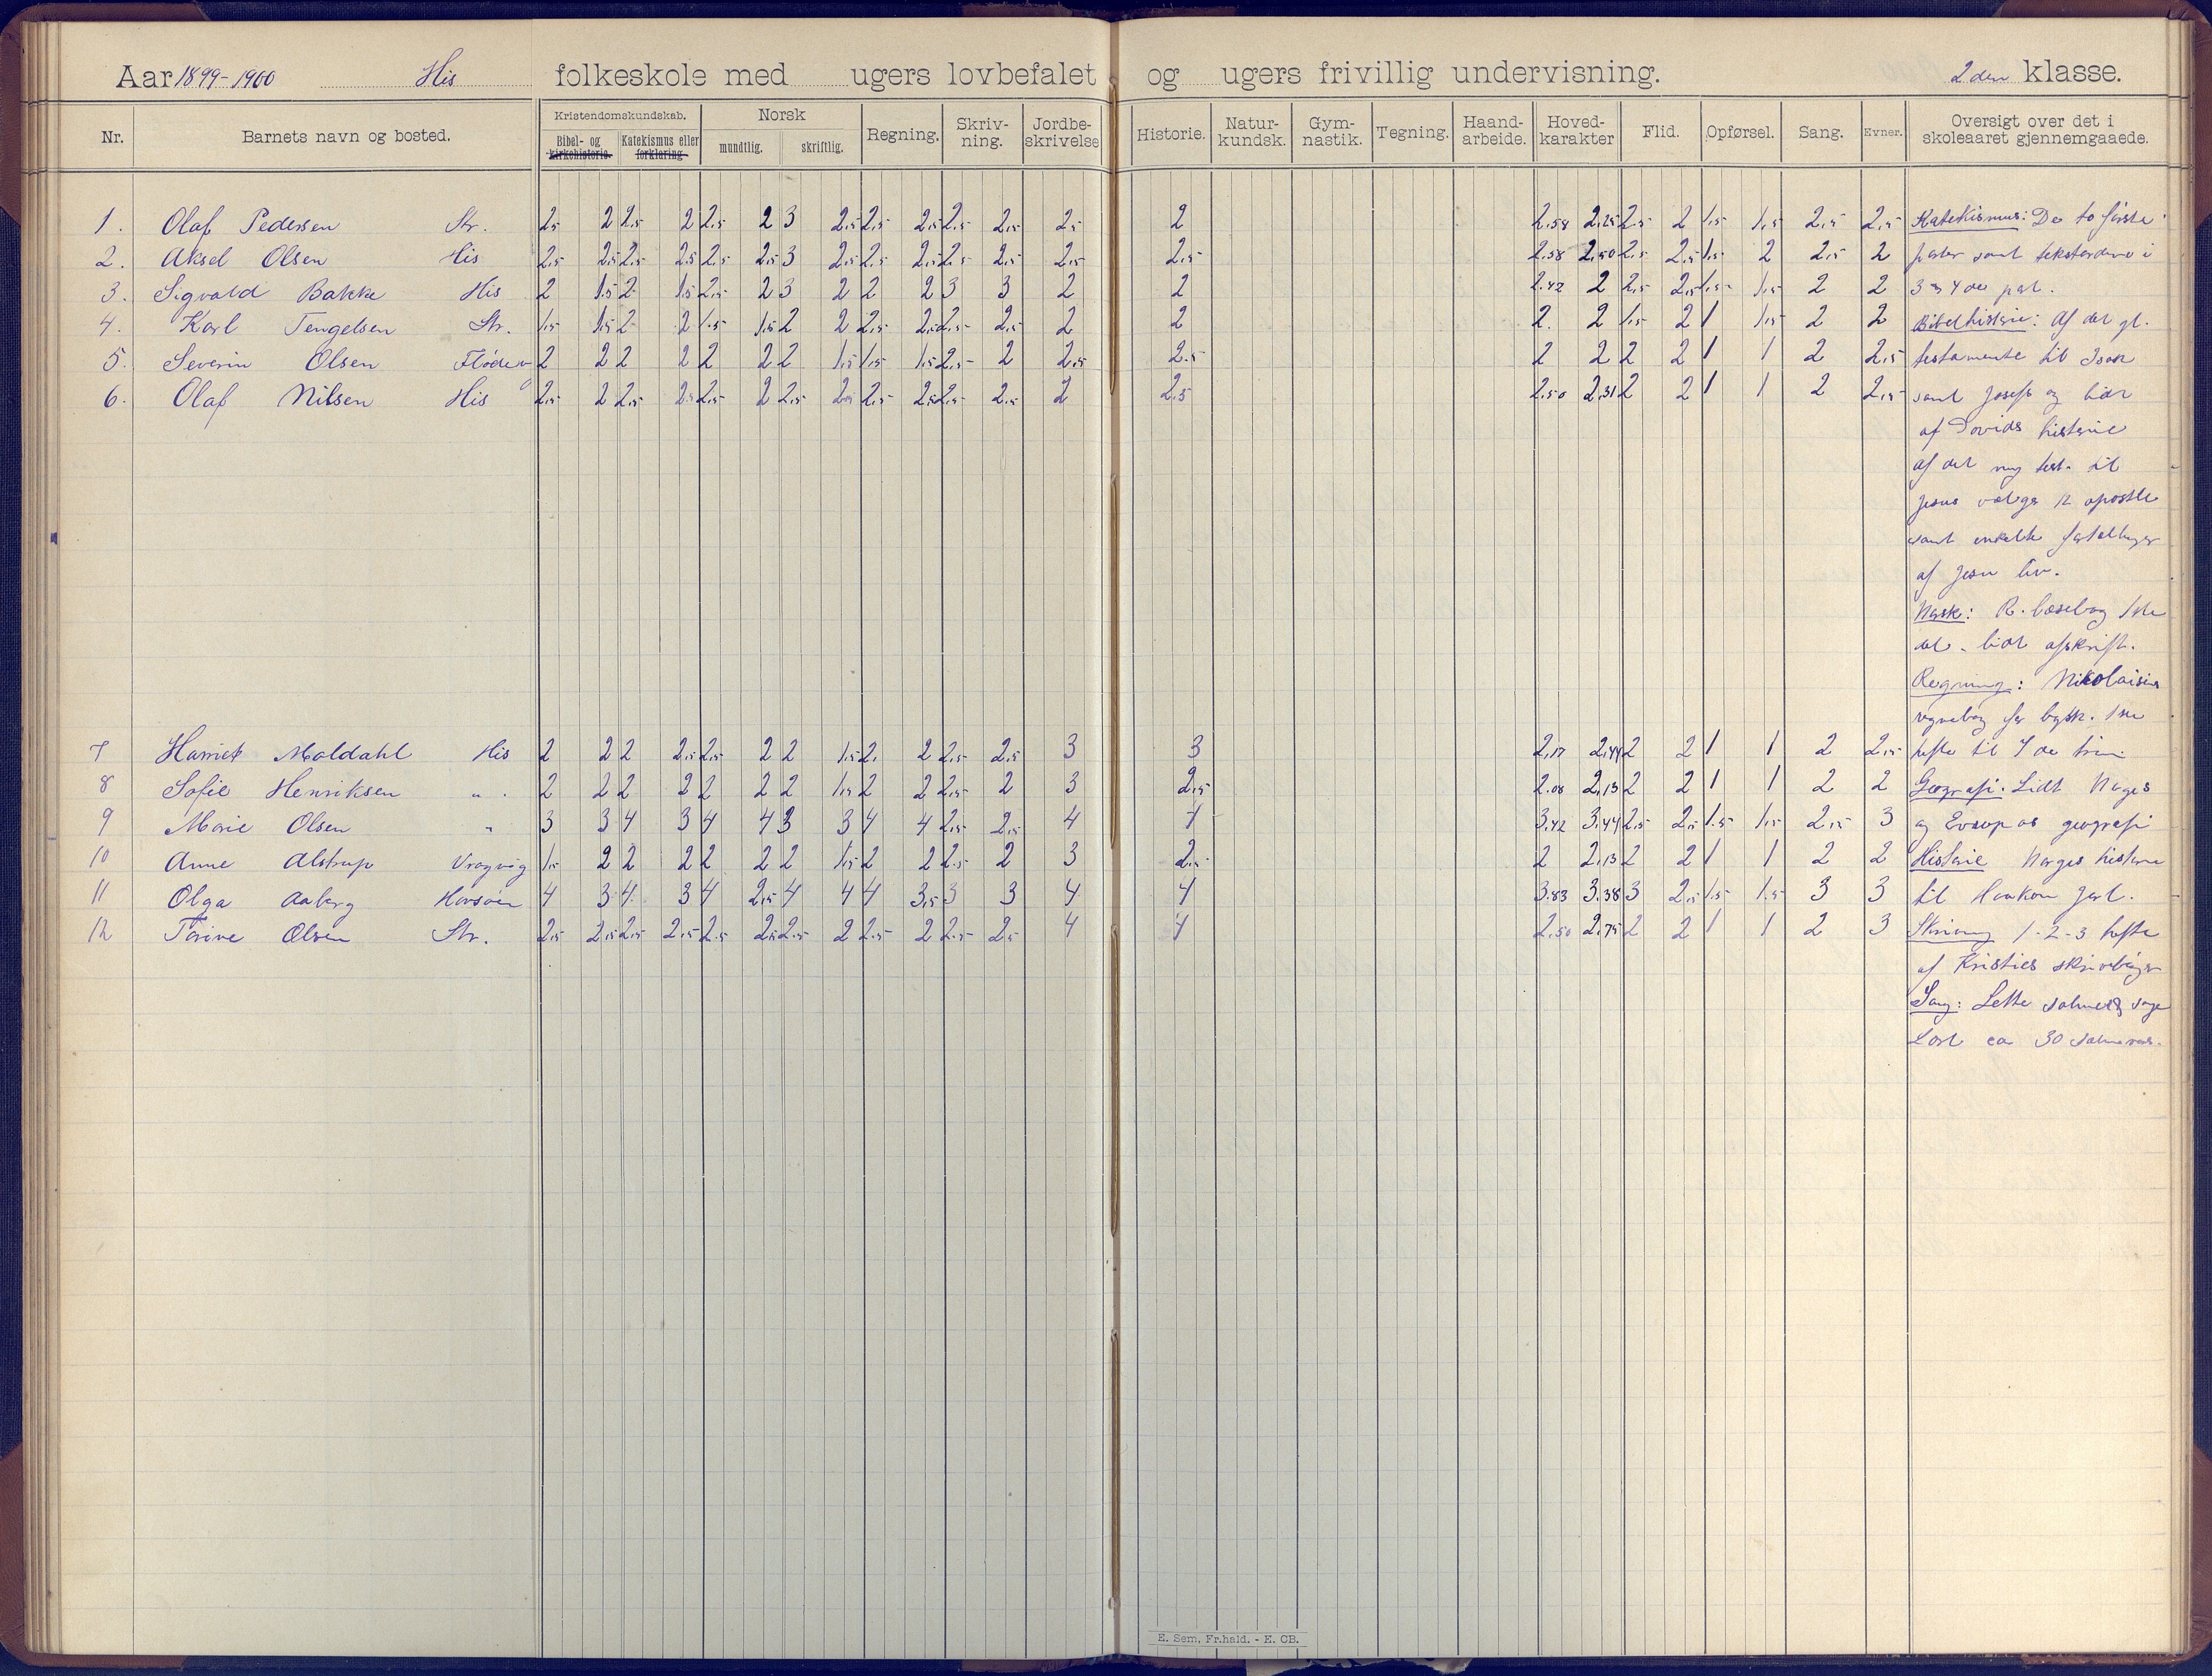 Aar 1899-1900 His folkeskole med ugers lovbefalet og ugers frivillig undervisning. 2den klasse.
Nr. Barnets navn og bosted. Kristendomskundskab. Bibel- og kirkehistorie. Katekismus eller forklaring. Norsk mundtlig. skriftlig. Regning. Skriv-ning. Jordbe-skrivelse Historie. Natur-kundsk. Gym-nastik. Tegning. Haand-arbeide. Hoved-karakter Flid. Opførsel. Sang. Evner. Oversigt over det i skoleaaret gjennemgaaede.
1. Olaf Pedersen Str. 2,5 2 2,5 2 2,5 2 3 2,5 2,5 2,5 2,5 2,5 2,5 2 2.58 2,25 2,5 2 1,5 1,5 2,5 2,5 Katekismus: De to første
2. Aksel Olsen His 2,5 2,5 2,5 2,5 2,5 2,5 3 2,5 2,5 2,5 2,5 2,5 2,5 2,5 2.58 2,50 2,5 2,5 1,5 2 2,5 2 parter samt teksterdene i
3. Sigvald Bakke His 2 1,5 2 1,5 2,5 2 3 2 2 2 3 3 2 2 2.42 2 2,5 2,5 1,5 1,5 2 2 3 og 4de part.
4. Karl Tengelsen Str. 1,5 1,5 2 2 1,5 1,5 2 2 2,5 2,5 2,5 2,5 2 2 2. 2 1,5 2 1 1,5 2 2 Bibelhistorie: Af det gl.
5. Severin Olsen Flødev 2 2 2 2 2 2 2 1,5 1,5 1,5 2,5 2 2,5 2.5 2 2 2 2 1 1 2 2,5 testamente til Isak
6. Olaf Nilsen His 2,5 2 2,5 2,5 2,5 2 2,5 2,5 2,5 2,5 2,5 2,5 2 2.5 2.50 2,31 2 2 1 1 2 2,5 samt Josefs og lidt
af Davids historie
af det ny test. til
Jesus vælger 12 apostle
samt enkelte fortællinger
af Jesu liv.
Norsk: R. læsebog 1ste
del. lidt afskrift.
Regning: Nikolaisens
regnebog for bysk. 1ste
7 Harriet Moldahl His 2 2 2 2,5 2,5 2 2 1,5 2. 2 2,5 2,5 3 3 2,17 2,44 2 2 1 1 2 2,5 hefte til 7de trin
8 Sofie Henriksen " . 2 2 2 2 2 2 2 1,5 2 2 2,5 2 3 2,5 2.08 2,13 2 2 1 1 2 2 Geografi. Lidt Norges
9 Marie Olsen " 3 3 4 3 4 4 3 3 4 4 2,5 2,5 4 4 3.42 3.44 2,5 2,5 1,5 1,5 2,5 3 og Europas geografi
10 Anne Alstrup Vragvåg 1,5 2 2 2 2 2 2 1,5 2 2 2,5 2 3 2,5 2 2,13 2 2 1 1 2 2 Historie Norges historie
11 Olga Aaberg Havsøen 4 3 4 3 4 2,5 4 4 4 3,5 3 3 4 4 3.83 3.38 3 2,5 1,5 1,5 3 3 til Haakon Jarl.
12 Torine Olsen Str. 2,5 2,5 2,5 2,5 2,5 2,5 2,5 2 2,5 2 2,5 2,5 4 4 2.50 2,75 2 2 1 1 2 3 Skrivning 1-2-3 hefte
af Kristies skrivebøger
Sang: Lette salmer og sange
Lært ca 30 salmevers.
E. Sem, Fr.hald. - E. CB.